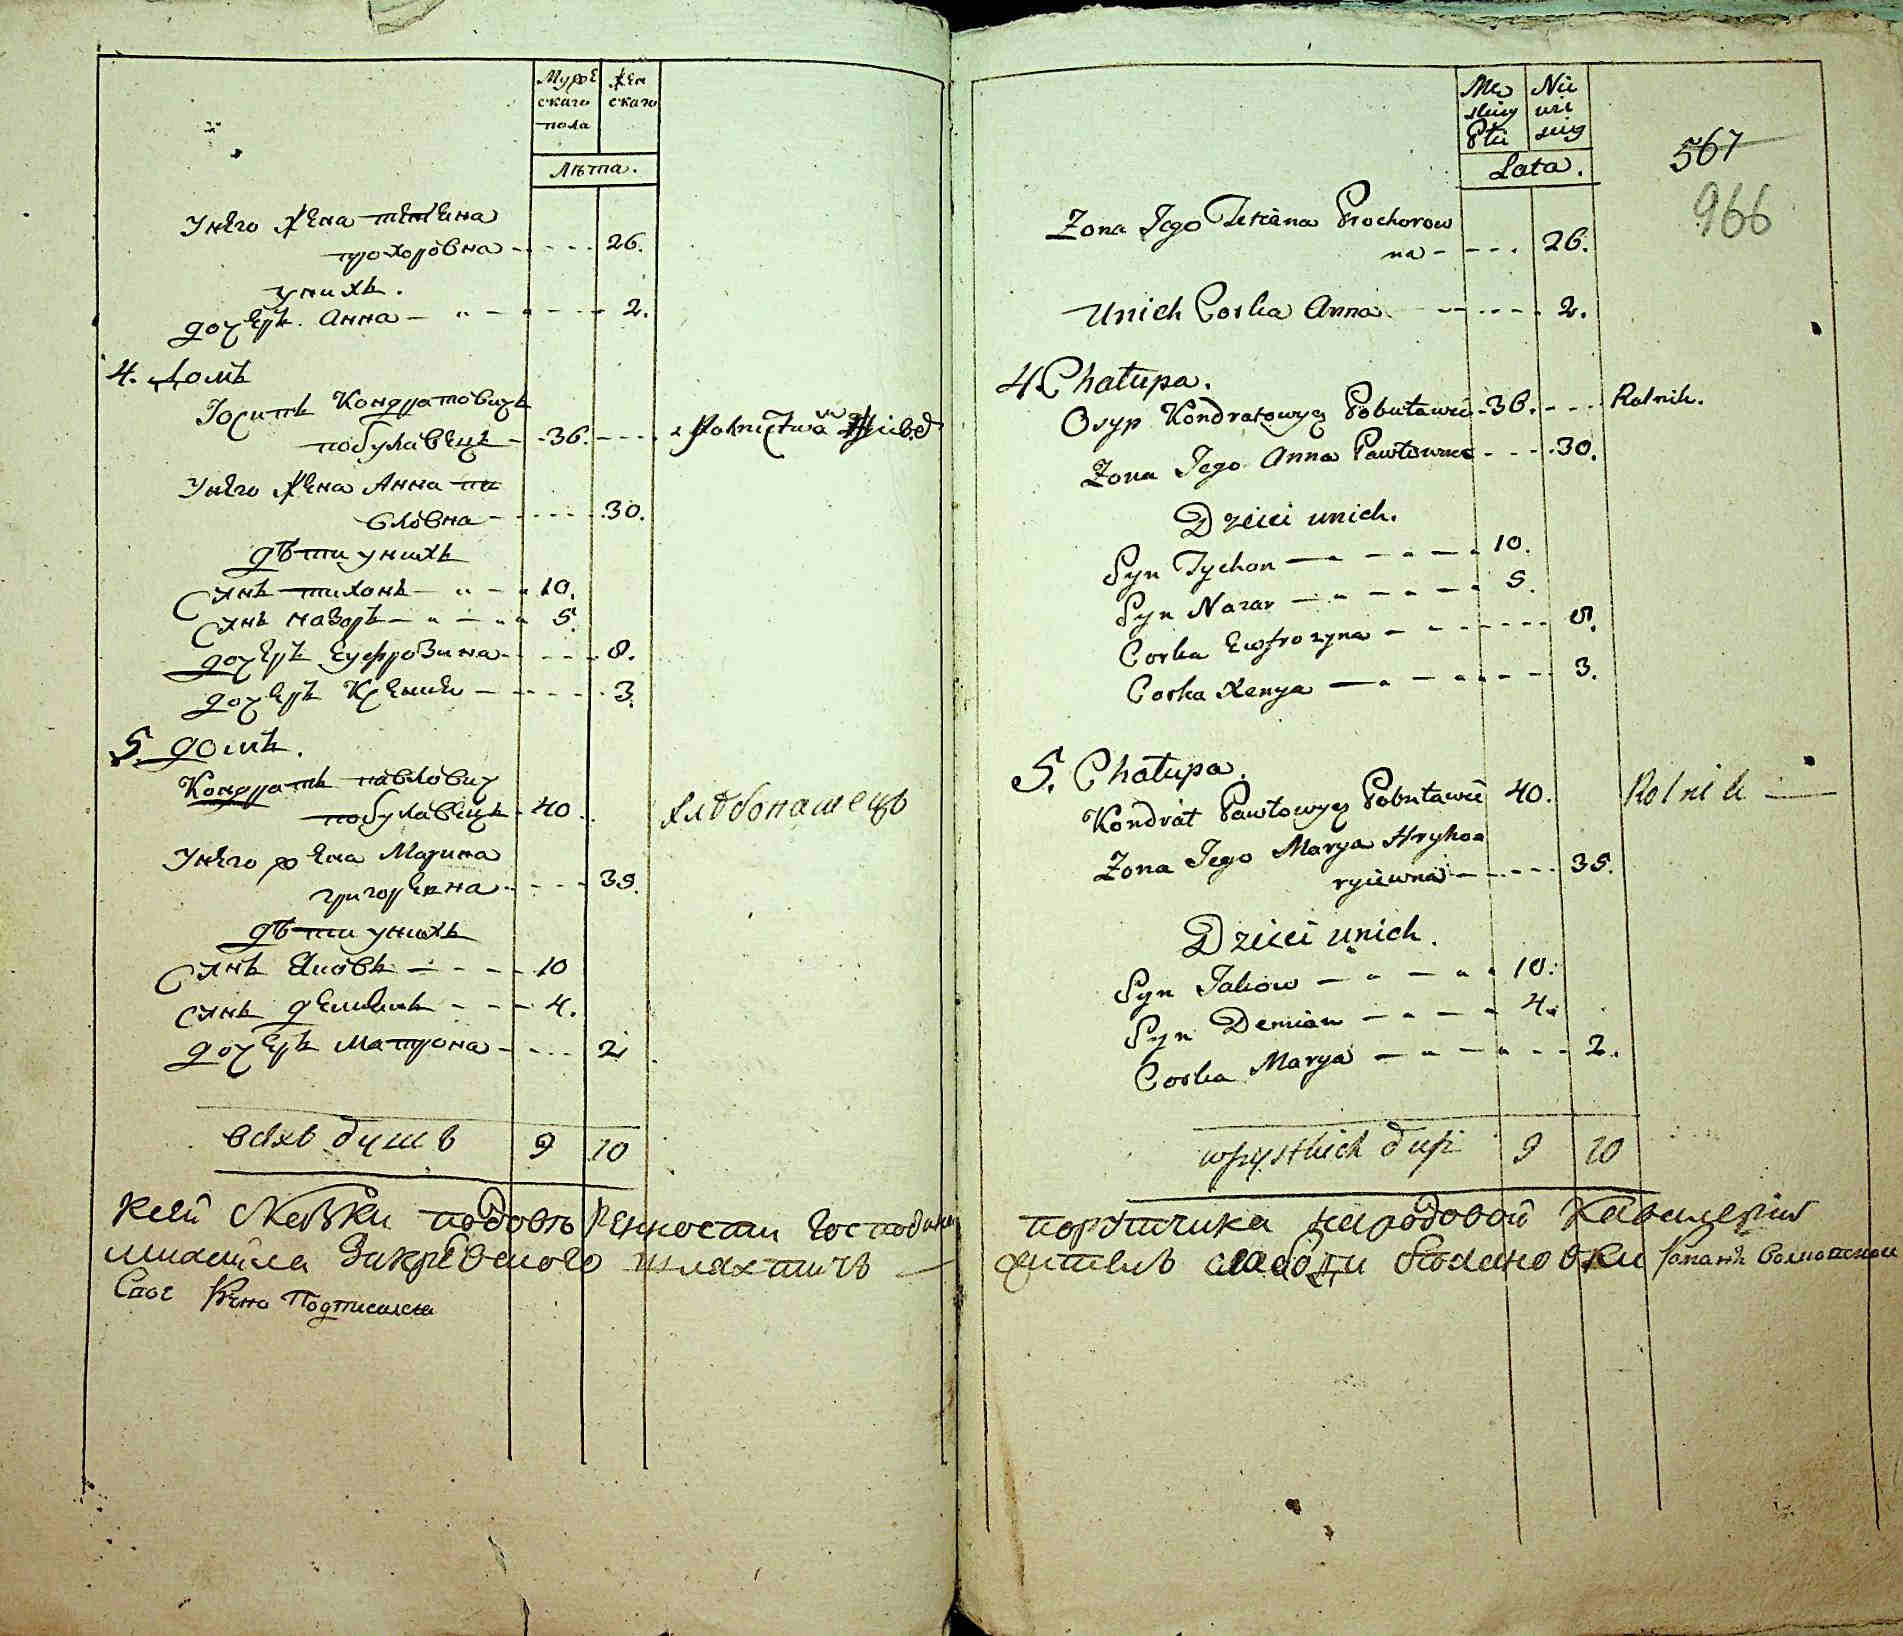 Мужескаго пола
женскаго
Лѣта.
У него жена тетиена
прохоровна - - - - 26.
у нихъ.
дочеръ Анна - - - 2.
4. домъ
Іосипъ Кондратовичъ
побулавецъ - 36. - - - Rolnictwa
У него жена Анна па
вловна - - - 30.
дѣти у нихъ
Сынъ тихонъ - - - 10.
Сынъ назаръ - - - 5.
дочеръ Еуфрозина - - - 8.
дочеръ Ксения - - - 3.
5 домъ.
Кондратъ павлович
побулавецъ - 40. хлѣбопашецъ
У него жена Марина
григоревна - - - 35.
дѣти у нихъ
Сынъ Яковъ - - - 10
Сынъ демианъ - - - 4.
дочеръ Матрона - - - 2
всѣхъ душъ 9 10
сказки подовъ
шляхтичъ
Подписался
Męskiey Płci
Niewieściey
Lata.
567
966
Zona Jego Teteana Prochorow
na - - - 26.
Unich Corka Anna - - - 2.
4. Chałupa.
Osyp Kondratowycz Pobuławec - 36. - - - Rolnik.
Zona Jego Anna Pawłowna - - - 30.
Dzieci unich.
Syn Tychon - - - 10.
Syn Nazar - - - 5.
Corka Ewfrozyna - - - 8.
Corka Xenya - - - 3.
5. Chałupa.
Kondrat Pawłowycz Pobuławec 40. Rolnik
Zona Jego Marya Hryho
ryiewna - - - 35.
Dzieci unich.
Syn Jakow - - - 10.
Syn Demian - - - 4.
Corka Marya - - - 2.
wszystkich dusz 9 10
поручика народовой Кавалерии
житель слободы Романъ